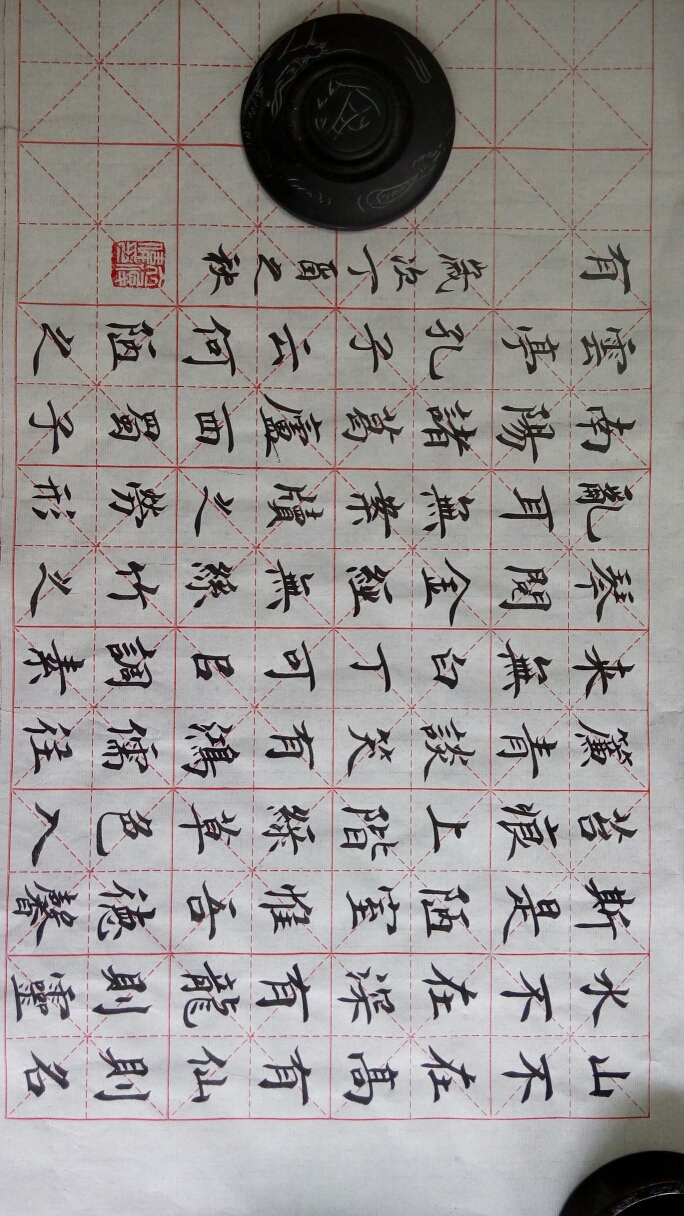 山不在高有仙則名
水不在深有龍則靈
斯是陋室惟吾德馨
苔痕上階綠草色入
簾青談笑有鴻儒往
来無白丁可㠯調素
琴閱金經無絲竹之
亂耳無案牘之勞形
南陽諸葛廬西蜀子
雲亭孔子云何陋之
有 歲次丁酉之秋